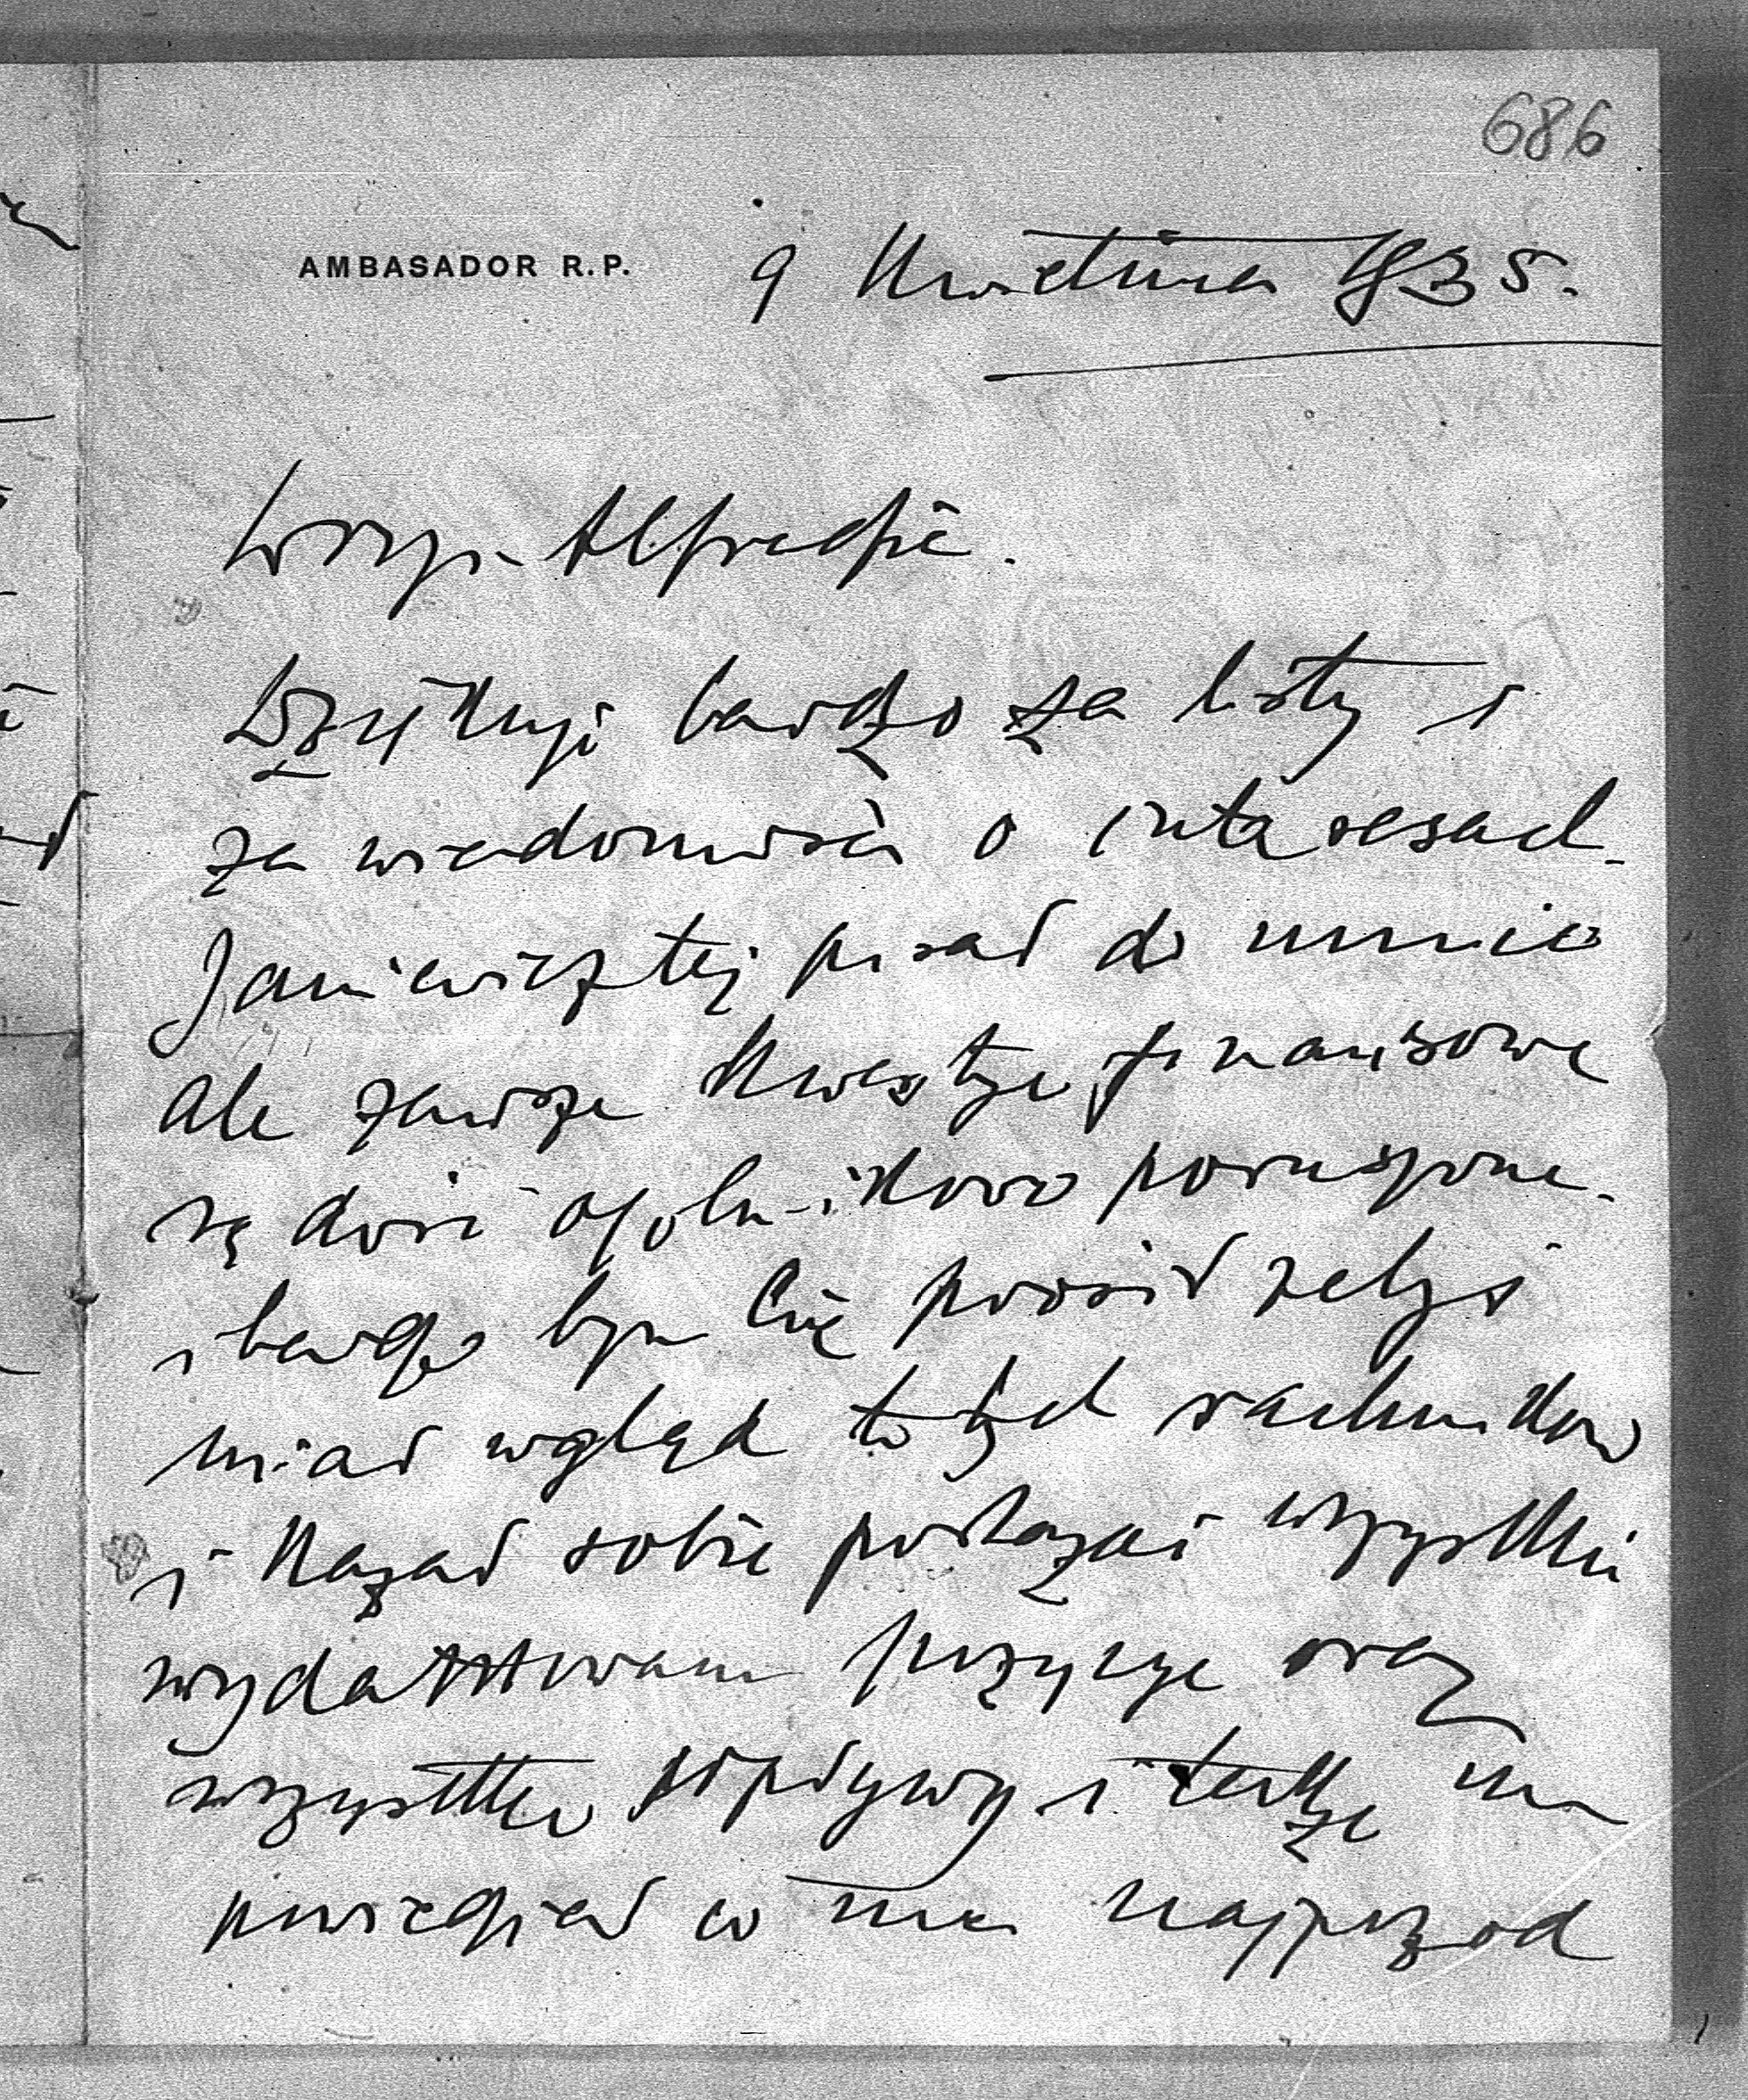 686
AMBASADOR R.P. 9 Kwietnia 1935.
Drogi Alfredzie.
Dziękuję bardzo za listy i
za wiadomości o interesach.
Janiewicz też pisał do mnie
ale zawsze kwestye finansowe
są dość ogolnikowo poruszone.
i bardzo bym Cię prosił żebyś
miał wgląd do tych rachunkow
i kazał sobie pokazać wszystkie
wydatkowane pozycye oraz
wszystkie wpływy i także mu
powiedział co ma najprzod